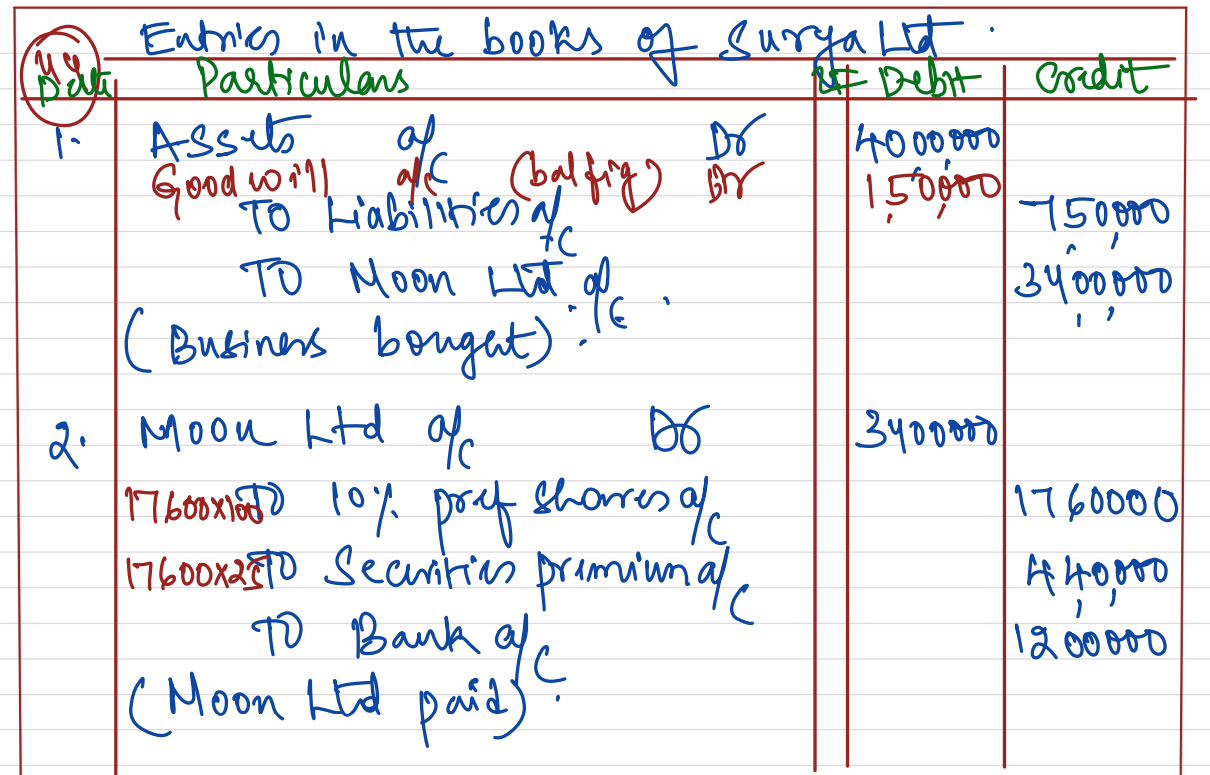 Entries in the books of Surya Ltd.
44
Date Particulars LF Debit Credit
1. Assets a/c Dr 4000000
Goodwill a/c (bal fig) Dr 1,50,000
TO Liabilities a/c 7,50,000
TO Moon Ltd a/c 34,00,000
(Business bought).
2. Moon Ltd a/c Dr 3400000
17600x100 TO 10% pref shares a/c 1760000
17600x25 TO Securities primium a/c 4,40,000
TO Bank a/c 1200000
(Moon Ltd paid).